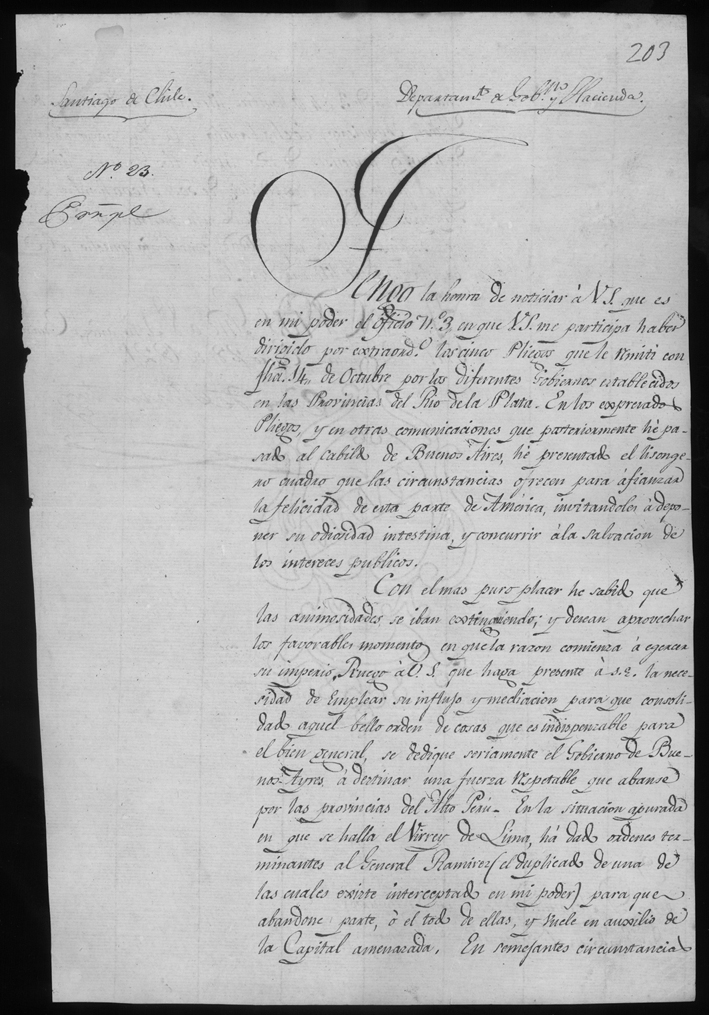 203
Santiago de Chile.
Departam.to de Gob.no y Hacienda.
N.o 23.
Tengo la honra de noticiar à V.S. que es
en mi poder el oficio N.o 3, en que V.S. me participa haber
dirigido por extraord.o los cinco Pliegos que le remiti con
fha. 14, de Octubre por los diferentes Gobiernos establecidos
en las Provincias del Rio de la Plata. En los expresados
Pliegos, y en otras comunicaciones que posteriormente hè pa-
sado al Cabildo de Buenos Aires, hè presentado el lisonge-
ro cuadro que las circunstancias ofrecen para àfianzar
la felicidad de esta parte de América, invitandoles à depo-
ner su odiosidad intestina, y concurrir à la salvacion de
los intereces publicos.
Con el mas puro placer he sabido que
las animosidades se iban extinguiendo; y desean aprovechar
los favorables momentos en que la razon comienza à egercer
su imperio. Ruego à V.S. que haga presente à S.E. la nece-
sidad de emplear su influjo y mediacion para que consoli-
dado aquel bello orden de cosas que es indispensable para
el bien general, se dedique seriamente el Gobierno de Bue-
nos Ayres, à destinar una fuerza respetable que abanse
por las provincias del Alto Perú. En la situacion apurada
en que se halla el Virrey de Lima, há dado ordenes ter-
minantes al General Ramirez (el duplicado de una de
las cuales existe interceptado en mi poder) para que
abandone parte, ò el todo de ellas, y vuele en auxilio de
la Capital amenazada. En semejantes circunstancias